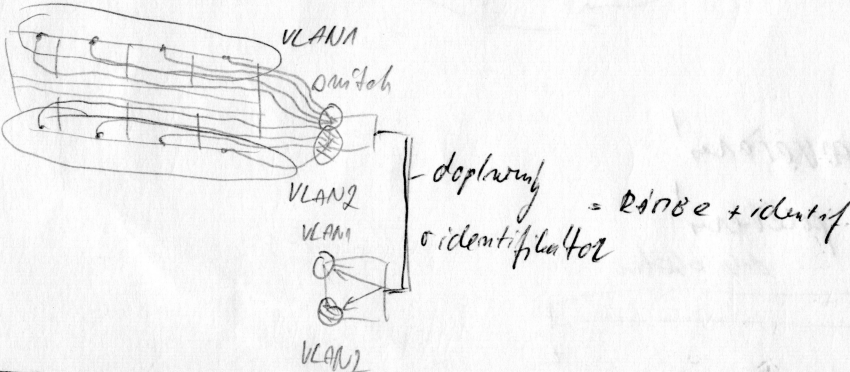 VLAN1
switch
VLAN2
VLAN1
doplněný
o identifikátor
= RÁMEC + identif
VLAN2